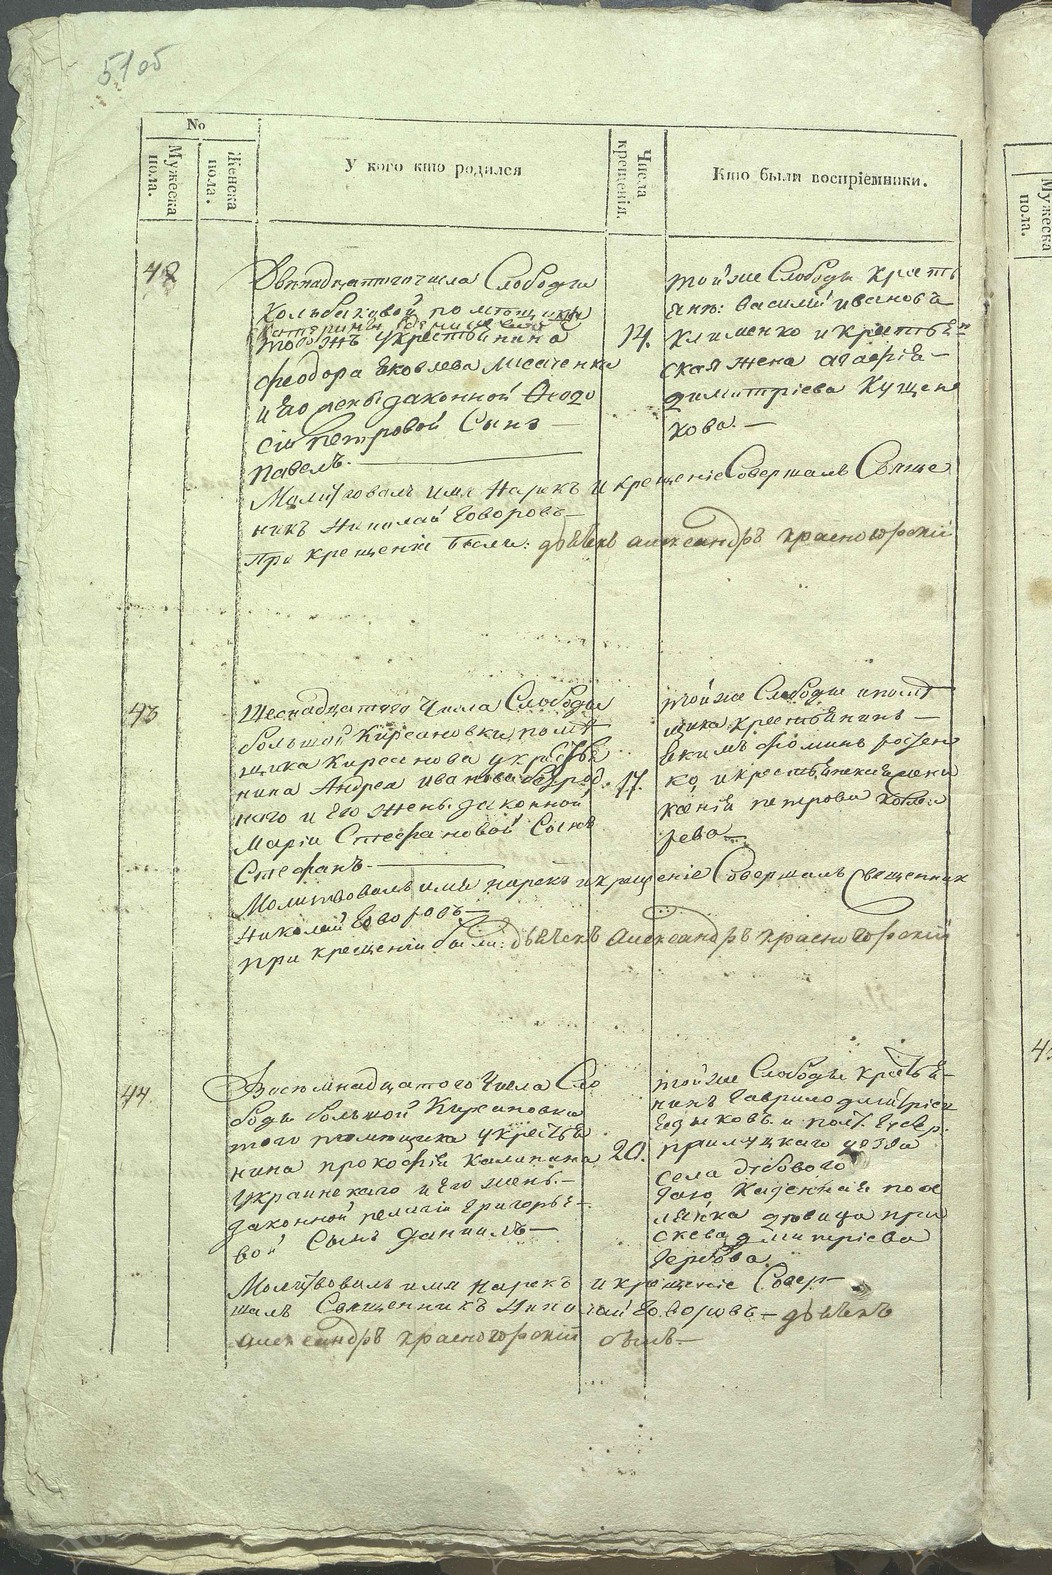 51об
No
Мужеска пола.
Женска пола.
У кого кто родился
Числа крещенія.
Кто были воспріемники.
42
Двенадцатого числа Слободы
Кольбаковой помещицы
Катерины
тожъ укрестьянина
Феодора Яковлева Лисаченка
и Его жены законной Феодо
сіи Петровой Сынъ
Павелъ.
14.
тойже Слободы крестъ
янин: Василій Иванова
Клименко и крестьян
ская жена Агафія
Димитріева Кущен
кова.
Молитвовалъ имя Нарекъ и крещеніе Совершалъ Священ
никъ Николай Говоровъ
При крещеніи были: дьячекъ Александръ Красногорскій
43
Шеснадцатого Числа Слободы
большой Кирсановки поме
щика Кирсанова укрестья
нина Андрея Иванова
ного и Его Жены законной
Маріи Стефановой Сынъ
Стефанъ.
17.
тойже Слободы и поме
щика крестьянинъ
Екимъ Фоминъ
ко, и крестьянская жена
Ксенія Петрова
рева
Молитвовалъ имя нарекъ и крещеніе Совершалъ Священник
Николай Говоровъ
При крещеніи были: дьячекъ Александръ Красногорскій
44.
Восемнадцатого Числа Сло
боды большой Кирсановки
того помещика укрестья
нина Прокофія Калинина
Украинскаго и Его жены
законной Пелагіи Григорье
вой Сынъ Даніилъ
20.
тойже Слободы крестья
нинъ Гаврило Дмитріев
Едыковъ и полт. Губер.
прилуцкаго уезда
села Дубового
Гаю, Казенная посе
лянка девица Пра
скева Дмитріева
Гербова.
Молитвовалъ имя нарекъ и крещеніе Совер
шалъ Священникъ Николай Говоровъ дьячекъ
Александръ Красногорскій былъ
Мужеска пола.